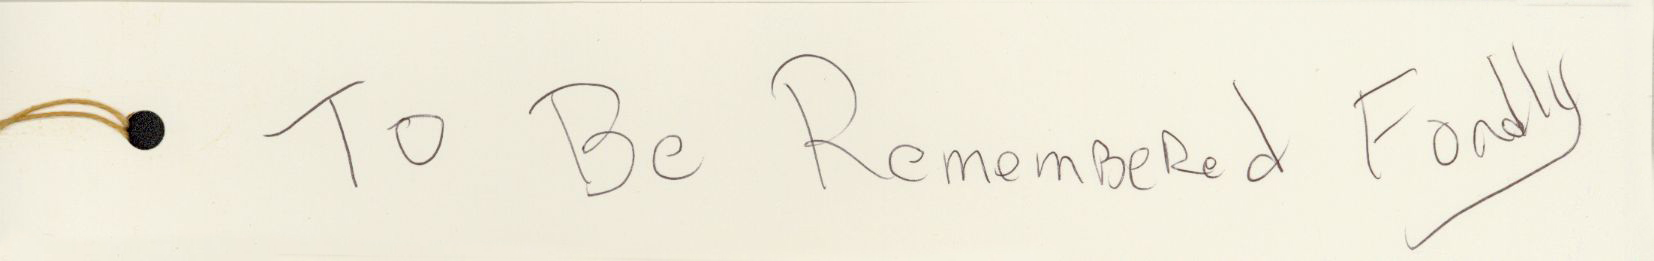 To Be Remembered Fondly